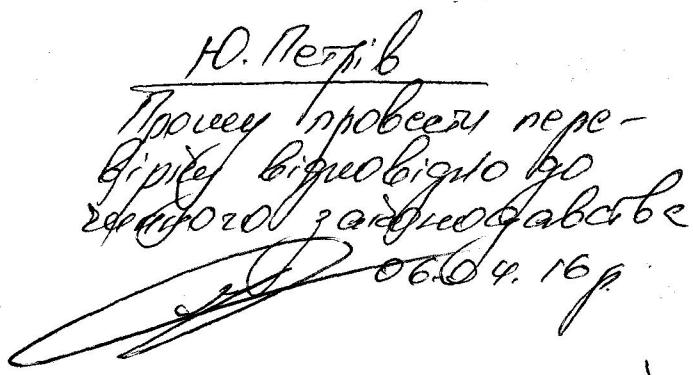 Ю. Петрів
Прошу провести пере-
вірку відповідно до
чинного законодавства
06.04.16 р.